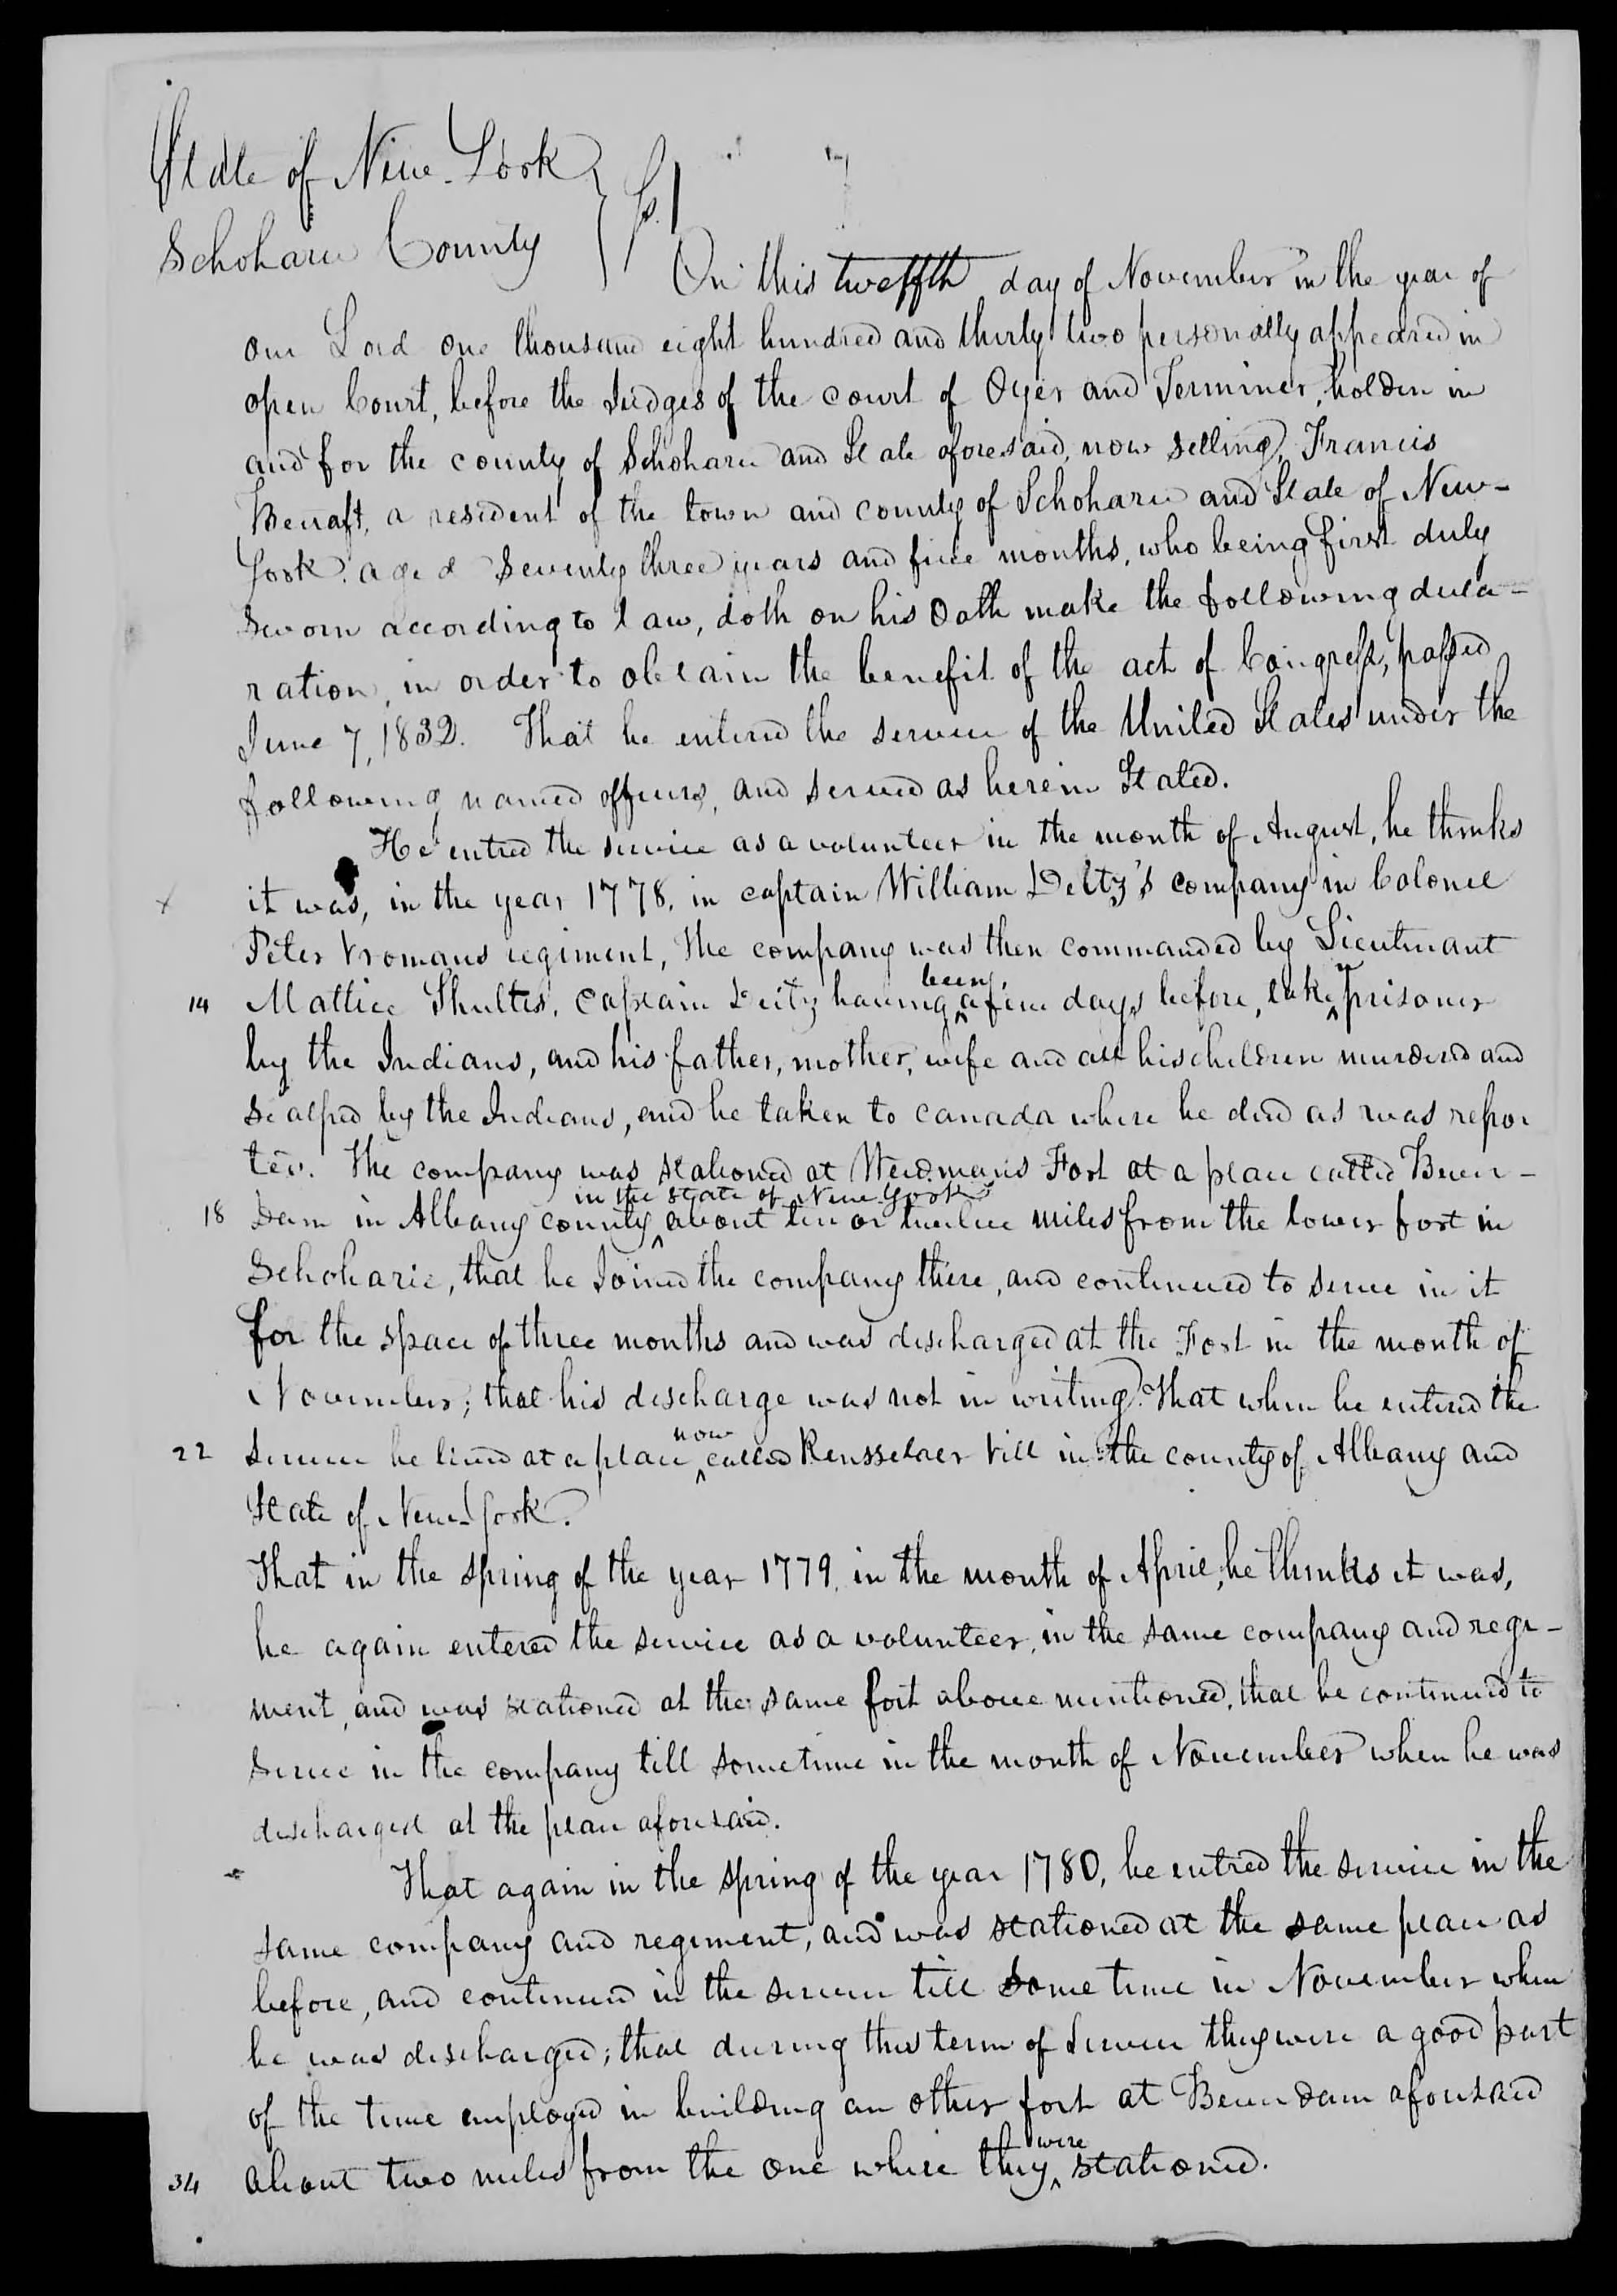 State of New-York } Ss.
Schoharie County
On this twelfth day of November in the year of
our Lord one thousand eight hundred and thirty two personally appeared in
open Court, before the Judges of the court of Oyer and Terminer, holden in
and for the county of Schoharie and State aforesaid, now setting, Francis
Becraft, a resident of the town and county of Schoharie and State of New-
York. aged Seventy three years and five months, who being first duly
sworn according to law, doth on his oath make the following decla-
ration, in order to obtain the benefit of the act of Congress, passed
June 7, 1832. That he entered the service of the United States under the
following named officers, and served as herein Stated.
He entred the service as a volunteer in the month of August, he thinks
it was, in the year 1778, in captain William Deitz's company in Colonel
Peter Vromans regiment, The company was then commanded by Lieutenant
14 Mattice Shultes, Captain Deitz having been a few days before, taken prisoner
by the Indians, and his father, mother, wife and all his children murdered and
scalped by the Indians, and he taken to Canada where he died as was repor
ted. The company was stationed at Weidmans Fort at a place called Beaver-
in the State of New York
18 Dam in Albany county about ten or twelve miles from the lower fort in
Schoharie, that he Joined the company there, and continued to serve in it
for the space of three months and was discharged at the Fort in the month of
November; that his discharge was not in writing. That when he entered the
22 service he lived at a place now called Rensselaer Vill in the county of Albany and
State of New-York.
That in the spring of the year 1779, in the month of April, he thinks it was,
he again entered the service as a volunteer, in the same company and regi-
ment, and was stationed at the same fort above mentioned, that he continued to
serve in the company till sometime in the month of November when he was
discharged at the place aforesaid.
That again in the spring of the year 1780, he entred the service in the
same company and regiment, and was stationed at the same place as
before, and continued in the service till Some time in November when
he was discharged; that during this term of service they were a good part
of the time employed in building an other fort at Beaverdam aforesaid
34 about two miles from the one where they were stationed.